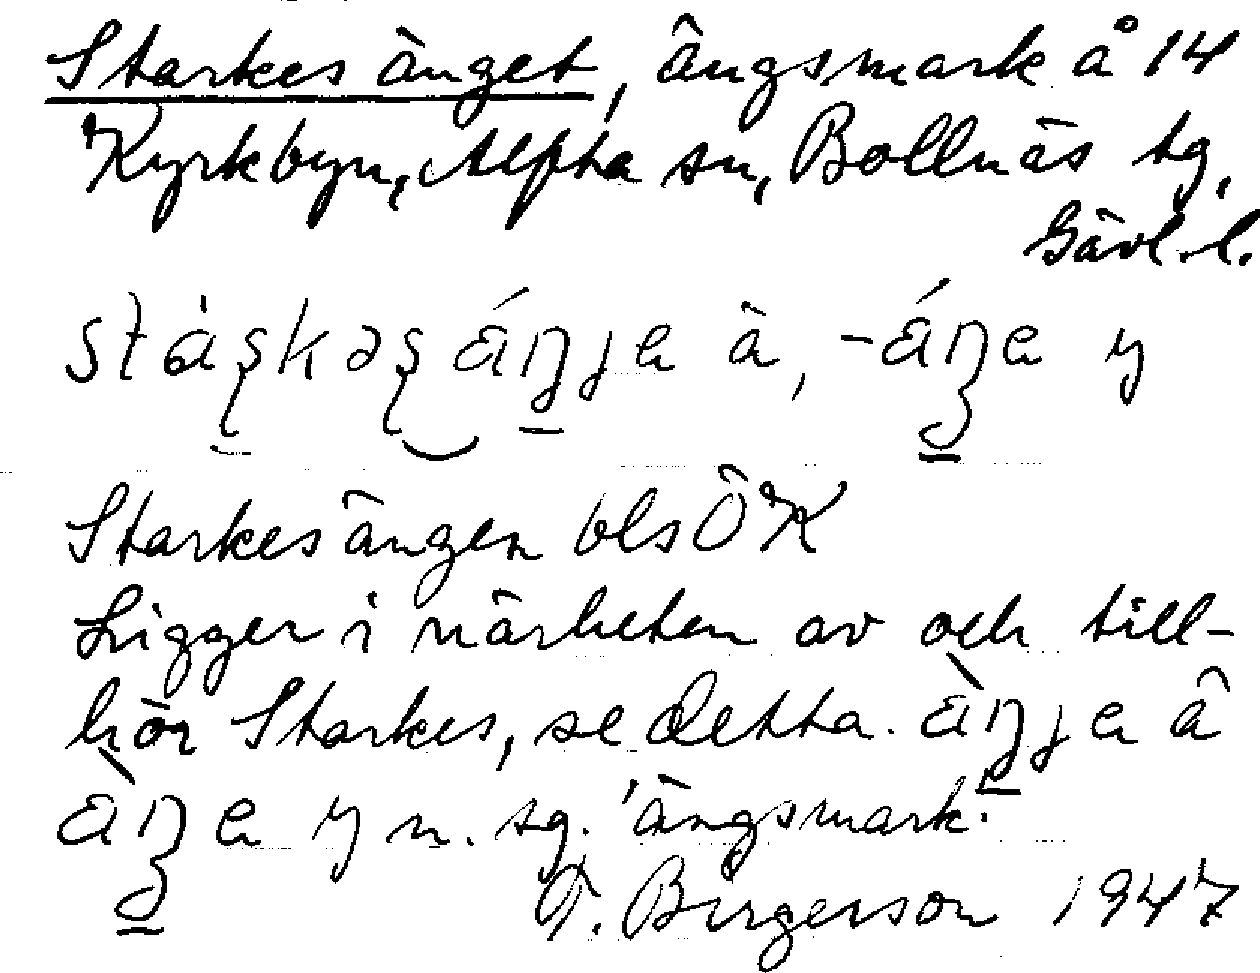 Starkes änget, ängsmark å 14
Kyrkbyn, Alfta sn, Bollnäs tg,
Gävl. l.
ä, y
Starkesängen bls ÖK
Ligger i närheten av och till-
hör Starkes, se detta. ä
y n. sg. 'ängsmark'.
T. Birgerson 1947